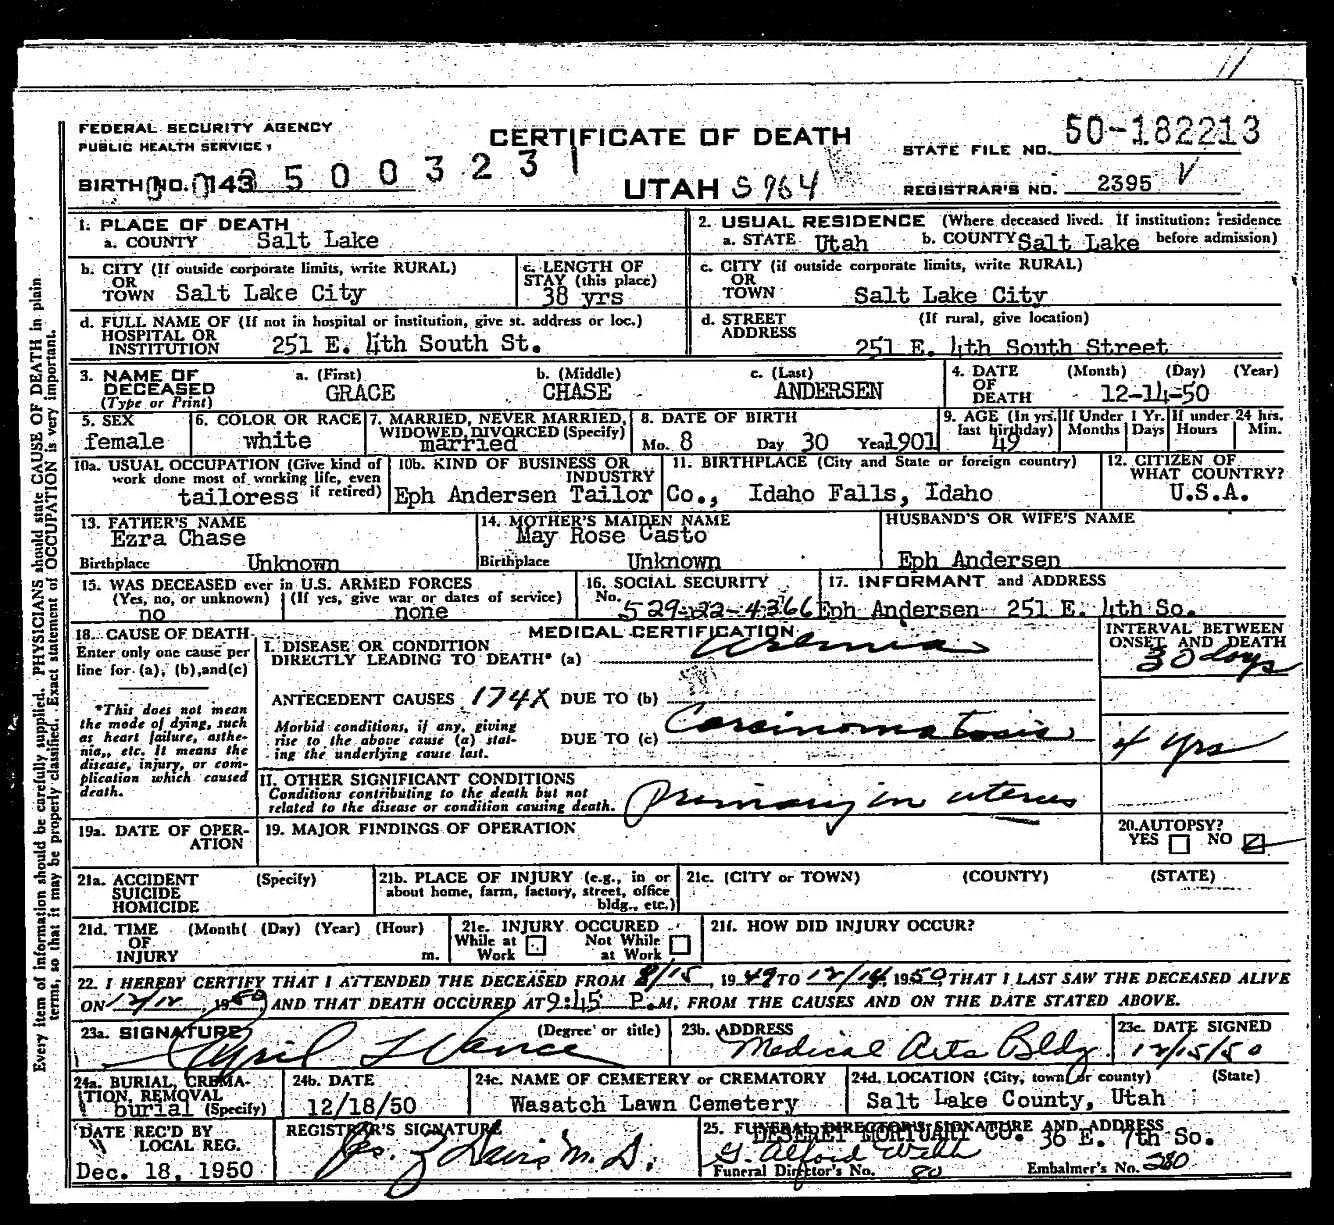 FEDERAL SECURITY AGENCY
PUBLIC HEALTH SERVICE
CERTIFICATE OF DEATH
STATE FILE NO. 50-182213
BIRTH NO. 143 500323
UTAH S964
REGISTRAR'S NO. 2395 V
1. PLACE OF DEATH
a. COUNTY Salt Lake
2. USUAL RESIDENCE (Where deceased lived. If institution: residence before admission)
a. STATE Utah b. COUNTY Salt Lake
b. CITY (If outside corporate limits, write RURAL)
OR
TOWN Salt Lake City
c. LENGTH OF
STAY (this place)
38 yrs
c. CITY (if outside corporate limits, write RURAL)
OR
TOWN Salt Lake City
d. FULL NAME OF (If not in hospital or institution, give st. address or loc.)
HOSPITAL OR
INSTITUTION 251 E. 4th South St.
d. STREET (If rural, give location)
ADDRESS
251 E. 4th South Street
3. NAME OF
DECEASED
(Type or Print)
a. (First) b. (Middle) c. (Last)
GRACE CHASE ANDERSEN
4. DATE (Month) (Day) (Year)
OF
DEATH 12-14-50
5. SEX
female
6. COLOR OR RACE
white
7. MARRIED, NEVER MARRIED,
WIDOWED, DIVORCED (Specify)
married
8. DATE OF BIRTH
Mo. 8 Day 30 Year 1901
9. AGE (In yrs. last birthday)
49
If Under 1 Yr.
Months Days
If under 24 hrs.
Hours Min.
10a. USUAL OCCUPATION (Give kind of
work done most of working life, even
if retired)
tailoress
10b. KIND OF BUSINESS OR
INDUSTRY
Eph Andersen Tailor Co.,
11. BIRTHPLACE (City and State or foreign country)
Idaho Falls, Idaho
12. CITIZEN OF
WHAT COUNTRY?
U.S.A.
13. FATHER'S NAME
Ezra Chase
Birthplace Unknown
14. MOTHER'S MAIDEN NAME
May Rose Casto
Birthplace Unknown
HUSBAND'S OR WIFE'S NAME
Eph Andersen
15. WAS DECEASED ever in U.S. ARMED FORCES
(Yes, no, or unknown) (If yes, give war or dates of service)
no none
16. SOCIAL SECURITY
No. 529-22-4366
17. INFORMANT and ADDRESS
Eph Andersen 251 E. 4th So.
18. CAUSE OF DEATH
Enter only one cause per
line for (a), (b), and (c)
*This does not mean
the mode of dying, such
as heart failure, asthe-
nia,, etc. It means the
disease, injury, or com-
plication which caused
death.
MEDICAL CERTIFICATION
I. DISEASE OR CONDITION
DIRECTLY LEADING TO DEATH* (a) Uremia
INTERVAL BETWEEN
ONSET AND DEATH
30 days
ANTECEDENT CAUSES 174X DUE TO (b)
Morbid conditions, if any, giving
rise to the above cause (a) stat-
ing the underlying cause last.
DUE TO (c) Carcinomatosis
4 yrs
II. OTHER SIGNIFICANT CONDITIONS
Conditions contributing to the death but not
related to the disease or condition causing death.
Primary in uterus
19a. DATE OF OPER-
ATION
19. MAJOR FINDINGS OF OPERATION
20. AUTOPSY?
YES NO
21a. ACCIDENT (Specify)
SUICIDE
HOMICIDE
21b. PLACE OF INJURY (e.g., in or
about home, farm, factory, street, office
bldg., etc.)
21c. (CITY or TOWN) (COUNTY) (STATE)
21d. TIME (Month( (Day) (Year) (Hour)
OF
INJURY m.
21e. INJURY OCCURED
While at Work Not While at Work
21f. HOW DID INJURY OCCUR?
22. I HEREBY CERTIFY THAT I ATTENDED THE DECEASED FROM 8/15, 1949 TO 12/14, 1950, THAT I LAST SAW THE DECEASED ALIVE
ON 12/12 1950, AND THAT DEATH OCCURED AT 9:45 P.M, FROM THE CAUSES AND ON THE DATE STATED ABOVE.
23a. SIGNATURE (Degree or title)
Cyril L Vance
23b. ADDRESS
Medical Arts Bldg.
23c. DATE SIGNED
12/15/50
24a. BURIAL, CREMA-
TION, REMOVAL
burial (Specify)
24b. DATE
12/18/50
24c. NAME OF CEMETERY or CREMATORY
Wasatch Lawn Cemetery
24d. LOCATION (City, town, or county) (State)
Salt Lake County, Utah
DATE REC'D BY
LOCAL REG.
Dec. 18, 1950
REGISTRAR'S SIGNATURE
Davis M.D.
25. FUNERAL DIRECTOR'S SIGNATURE AND ADDRESS
DESERET MORTUARY CO. 36 E. 7th So.
Funeral Director's No. 80 Embalmer's No. 280
Every item of information should be carefully supplied. PHYSICIANS should state CAUSE OF DEATH in plain
terms, so that it may be properly classified. Exact statement of OCCUPATION is very important.